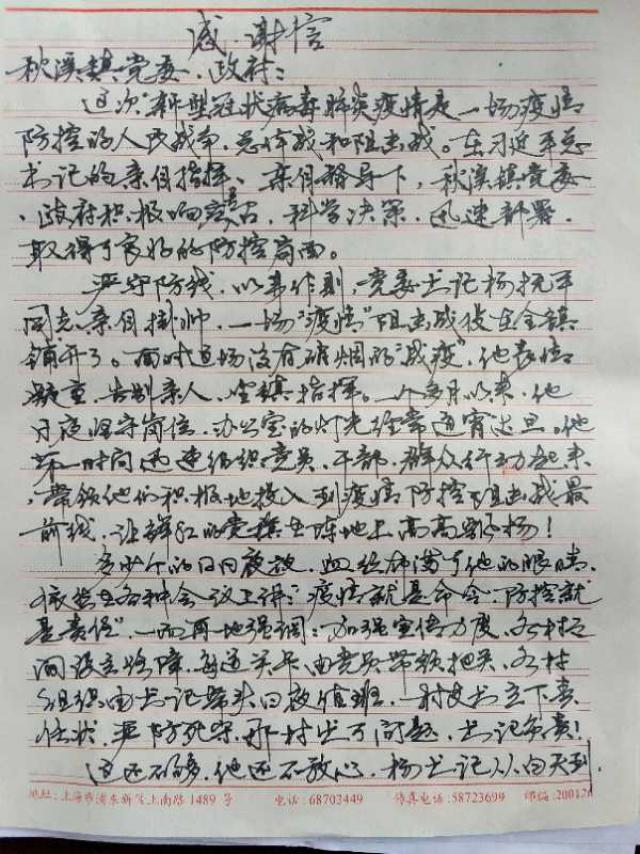 感谢信
秋溪镇党委、政府：
这次“新型冠状病毒肺炎疫情是一场疫情
防控的人民战争、总体战和阻击战。在习近平总
书记的亲自指挥、亲自督导下，秋溪镇党委
、政府积极响应号召，科学决策、迅速部署，
取得了良好的防控局面。
严守防线，以身作则，党委书记杨抚平
同志亲自挂帅，一场“疫情”阻击战役在全镇
铺开了。面对这场没有硝烟的“战疫”，他表情
凝重，告别亲人，坐镇指挥。一个多月以来，他
日夜坚守岗位，办公室的灯光经常通宵达旦。他
第一时间迅速组织党员、干部、群众行动起来
，带领他们积极地投入到疫情防控阻击战最
前线，让鲜红的党旗在阵地上高高飘扬！
多少个的日日夜夜，血丝布满了他的眼睛，
依然在各种会议上讲：“疫情就是命令，防控就
是责任”，一而再地强调：加强宣传力度，各村之
间设立路障，每道关卡由党员带领把关，各村
组织由书记带头日夜值班，一村支书立下责
任状，严防死守，那村出了问题，书记负责！
这还不够，他还不放心，杨书记从白天到
地址：上海市浦东新区上南路 1489 号 电话：68703449 传真电话：58723699 邮编：200126